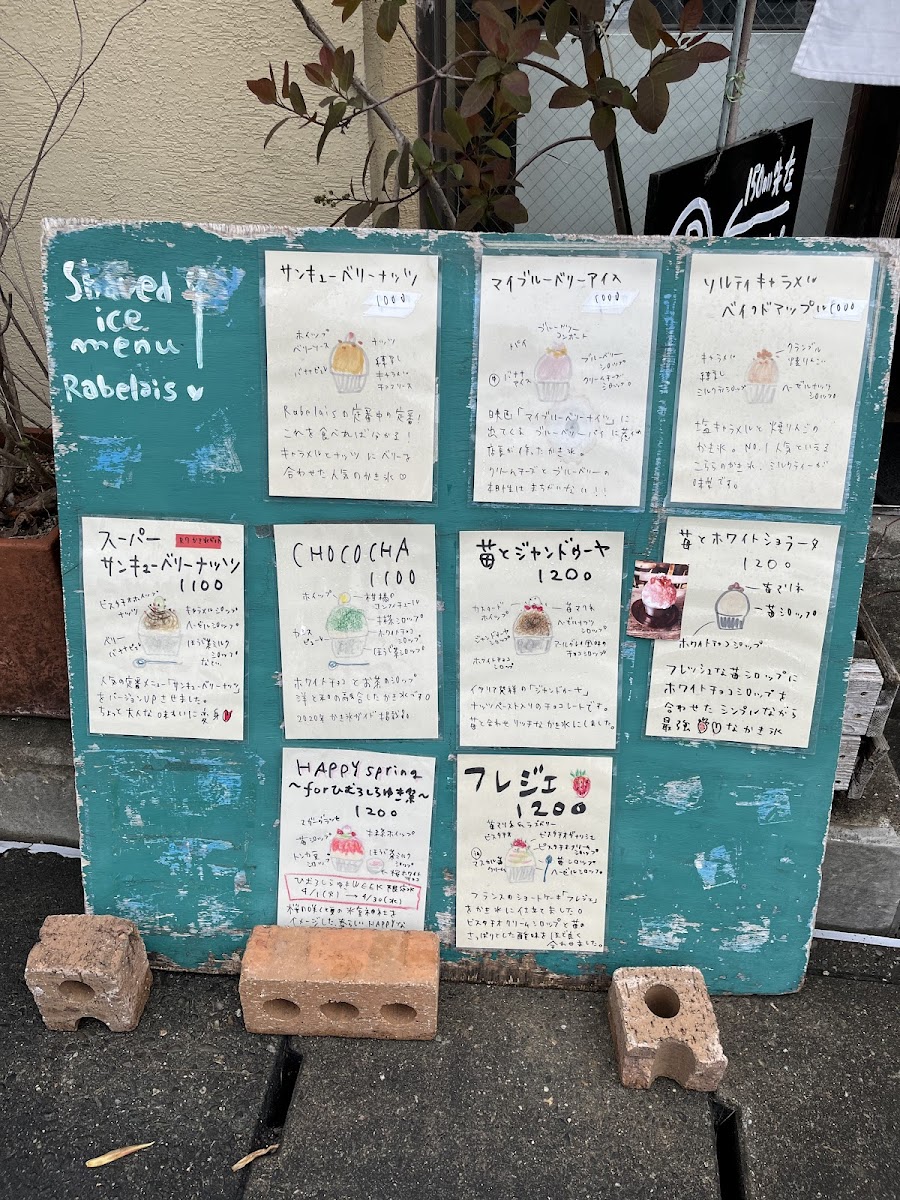 Shaved
ice
menu
Rabelais
150m 先左
サンキューベリーナッツ
1000
ホイップ
ベリーソース
バナナゼリー
ナッツ
練乳
キャラメル
チョコソース
Rabelaisの定番中の定番!
これを食べれば分かる!
キャラメルとナッツにベリーを
合わせた人気のかき氷♡
マイブルーベリーアイス
1000
ブルーベリー
コンポート
パイ
ブルーベリー
シロップ
バナナ
アイス
クリームチーズ
シロップ
映画「マイブルーベリーナイツ」に
出てくるブルーベリーパイに
クリームチーズとブルーベリーの
相性はまちがいない!!
ソルティキャラメル
ベイクドアップル
1000
キャラメル
練乳
ミルクティシロップ
クランブル
焼りんご
ヘーゼルナッツ
シロップ
塩キャラメルと焼リンゴの
かき氷。NO.1人気といえる
こちらのかき氷、ミルクティーベースが
味です。
スーパー
サンキューベリーナッツ
1100
ピスタチオホイップ
ナッツ
キャラメルシロップ
ヘーゼルシロップ
ベリー
バナナゼリー
ほうじ茶ミルク
シロップ
人気の定番メニュー「サンキューベリーナッツ」
をバージョンUPさせました。
ちょっと大人な味わいに変身
CHOCOCHA
1100
ホイップ
柑橘
コンフィチュール
抹茶シロップ
ホワイトチョコ
シロップ
ほうじ茶シロップ
ホワイトチョコとお茶のシロップ
洋と和の融合したかき氷です
2020年かき氷ガイド掲載
苺とジャンドゥーヤ
1200
カスタード
ホイップ
苺マリネ
ヘーゼルナッツ
シロップ
ジャンドゥーヤ
ホワイトチョコ
シロップ
チョコシロップ
イタリア発祥の「ジャンドゥーヤ」
ナッツペースト入りのチョコレートです。
苺と合わせリッチなかき氷にしました。
苺とホワイトショコラータ
1200
苺マリネ
苺シロップ
ホワイトチョコシロップ
フレッシュな苺シロップに
ホワイトチョコシロップを
合わせたシンプルながら
最強なかき氷
HAPPY spring
～forひむろしらゆき祭～
1200
苺シロップ
抹茶ホイップ
ほうじ茶ミルク
シロップ
ひむろしらゆきWEEK限定
4/1(火)→4/30(水)
イメージした春らしいHAPPYな
フレジェ
1200
苺マリネ&ラズベリー
ピスタチオ
カスタード
クリーム
苺シロップ
ヘーゼルシロップ
フランスのショートケーキ「フレジェ」
をかき氷に仕立てました。
ピスタチオクリームシロップと苺の
さっぱりとした酸味をほど良く
合わせました。